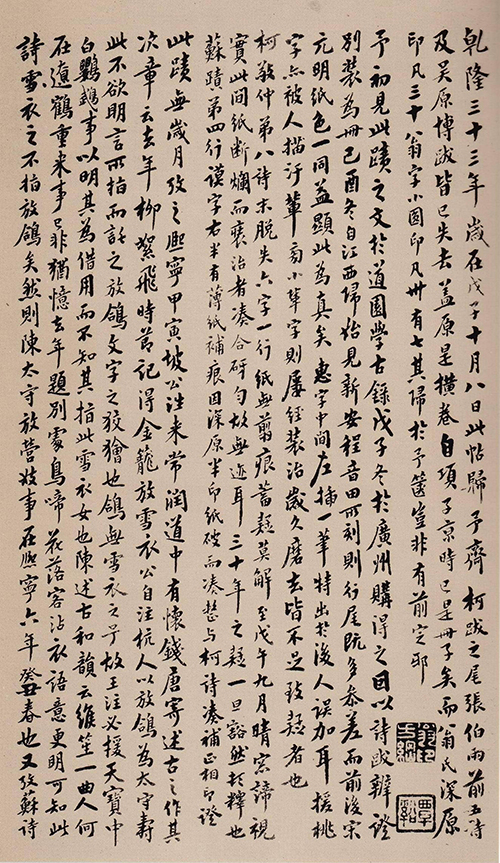 乾隆三十三年歲在戊子十月八日此帖歸予齋柯跋之尾張伯雨前五詩
及吳原博跋皆已失去蓋原是橫卷自項子京時已是冊子矣而翁氏深原
印凡三十翁字小圓印凡卅有七其歸於予篋豈非有前定耶
予初見此蹟之文於道園學古錄戊子冬於廣州購得之因以詩跋辨證
別裝為冊己酉冬自江西歸始見新安程音田所刻則行尾既多參差而前後宋
元明紙色一同益顯此為真矣惠字中間左插一筆特出於後人誤加耳援桃
字亦被人描汙輩商小輩字則屢經裝治歲久磨去皆不足致疑者也
柯敬仲第八詩末脫失六字一行紙無翦痕蓄疑莫解至戊午九月晴窗諦視
實此間紙斷爛而裝治者湊合研勻故無迹耳三十年之疑一旦豁然於釋也
蘇蹟第四行謨字右半有薄紙補痕因深原半印紙破而湊整與柯詩湊補正相印證
此蹟無歲月攷之熙寧甲寅坡公往來常潤道中有懷錢唐寄述古之作其
次章云去年柳絮飛時節記得金籠放雪衣公自注杭人以放鴿為太守壽
此不欲明言所指而託之放鴿文字之狡獪也鴿無雪衣之号故王注必援天寶中
白鸚鵡事以明其為借用而不知其指此雪衣女也陳述古和韻云維笙一曲人何
在遼鶴重來事已非猶憶去年題別處鳥啼花落客沾衣語意更明可知此
詩雪衣之不指放鴿矣然則陳太守放營妓事在熙寧六年癸丑春也又攷蘇詩
覃谿